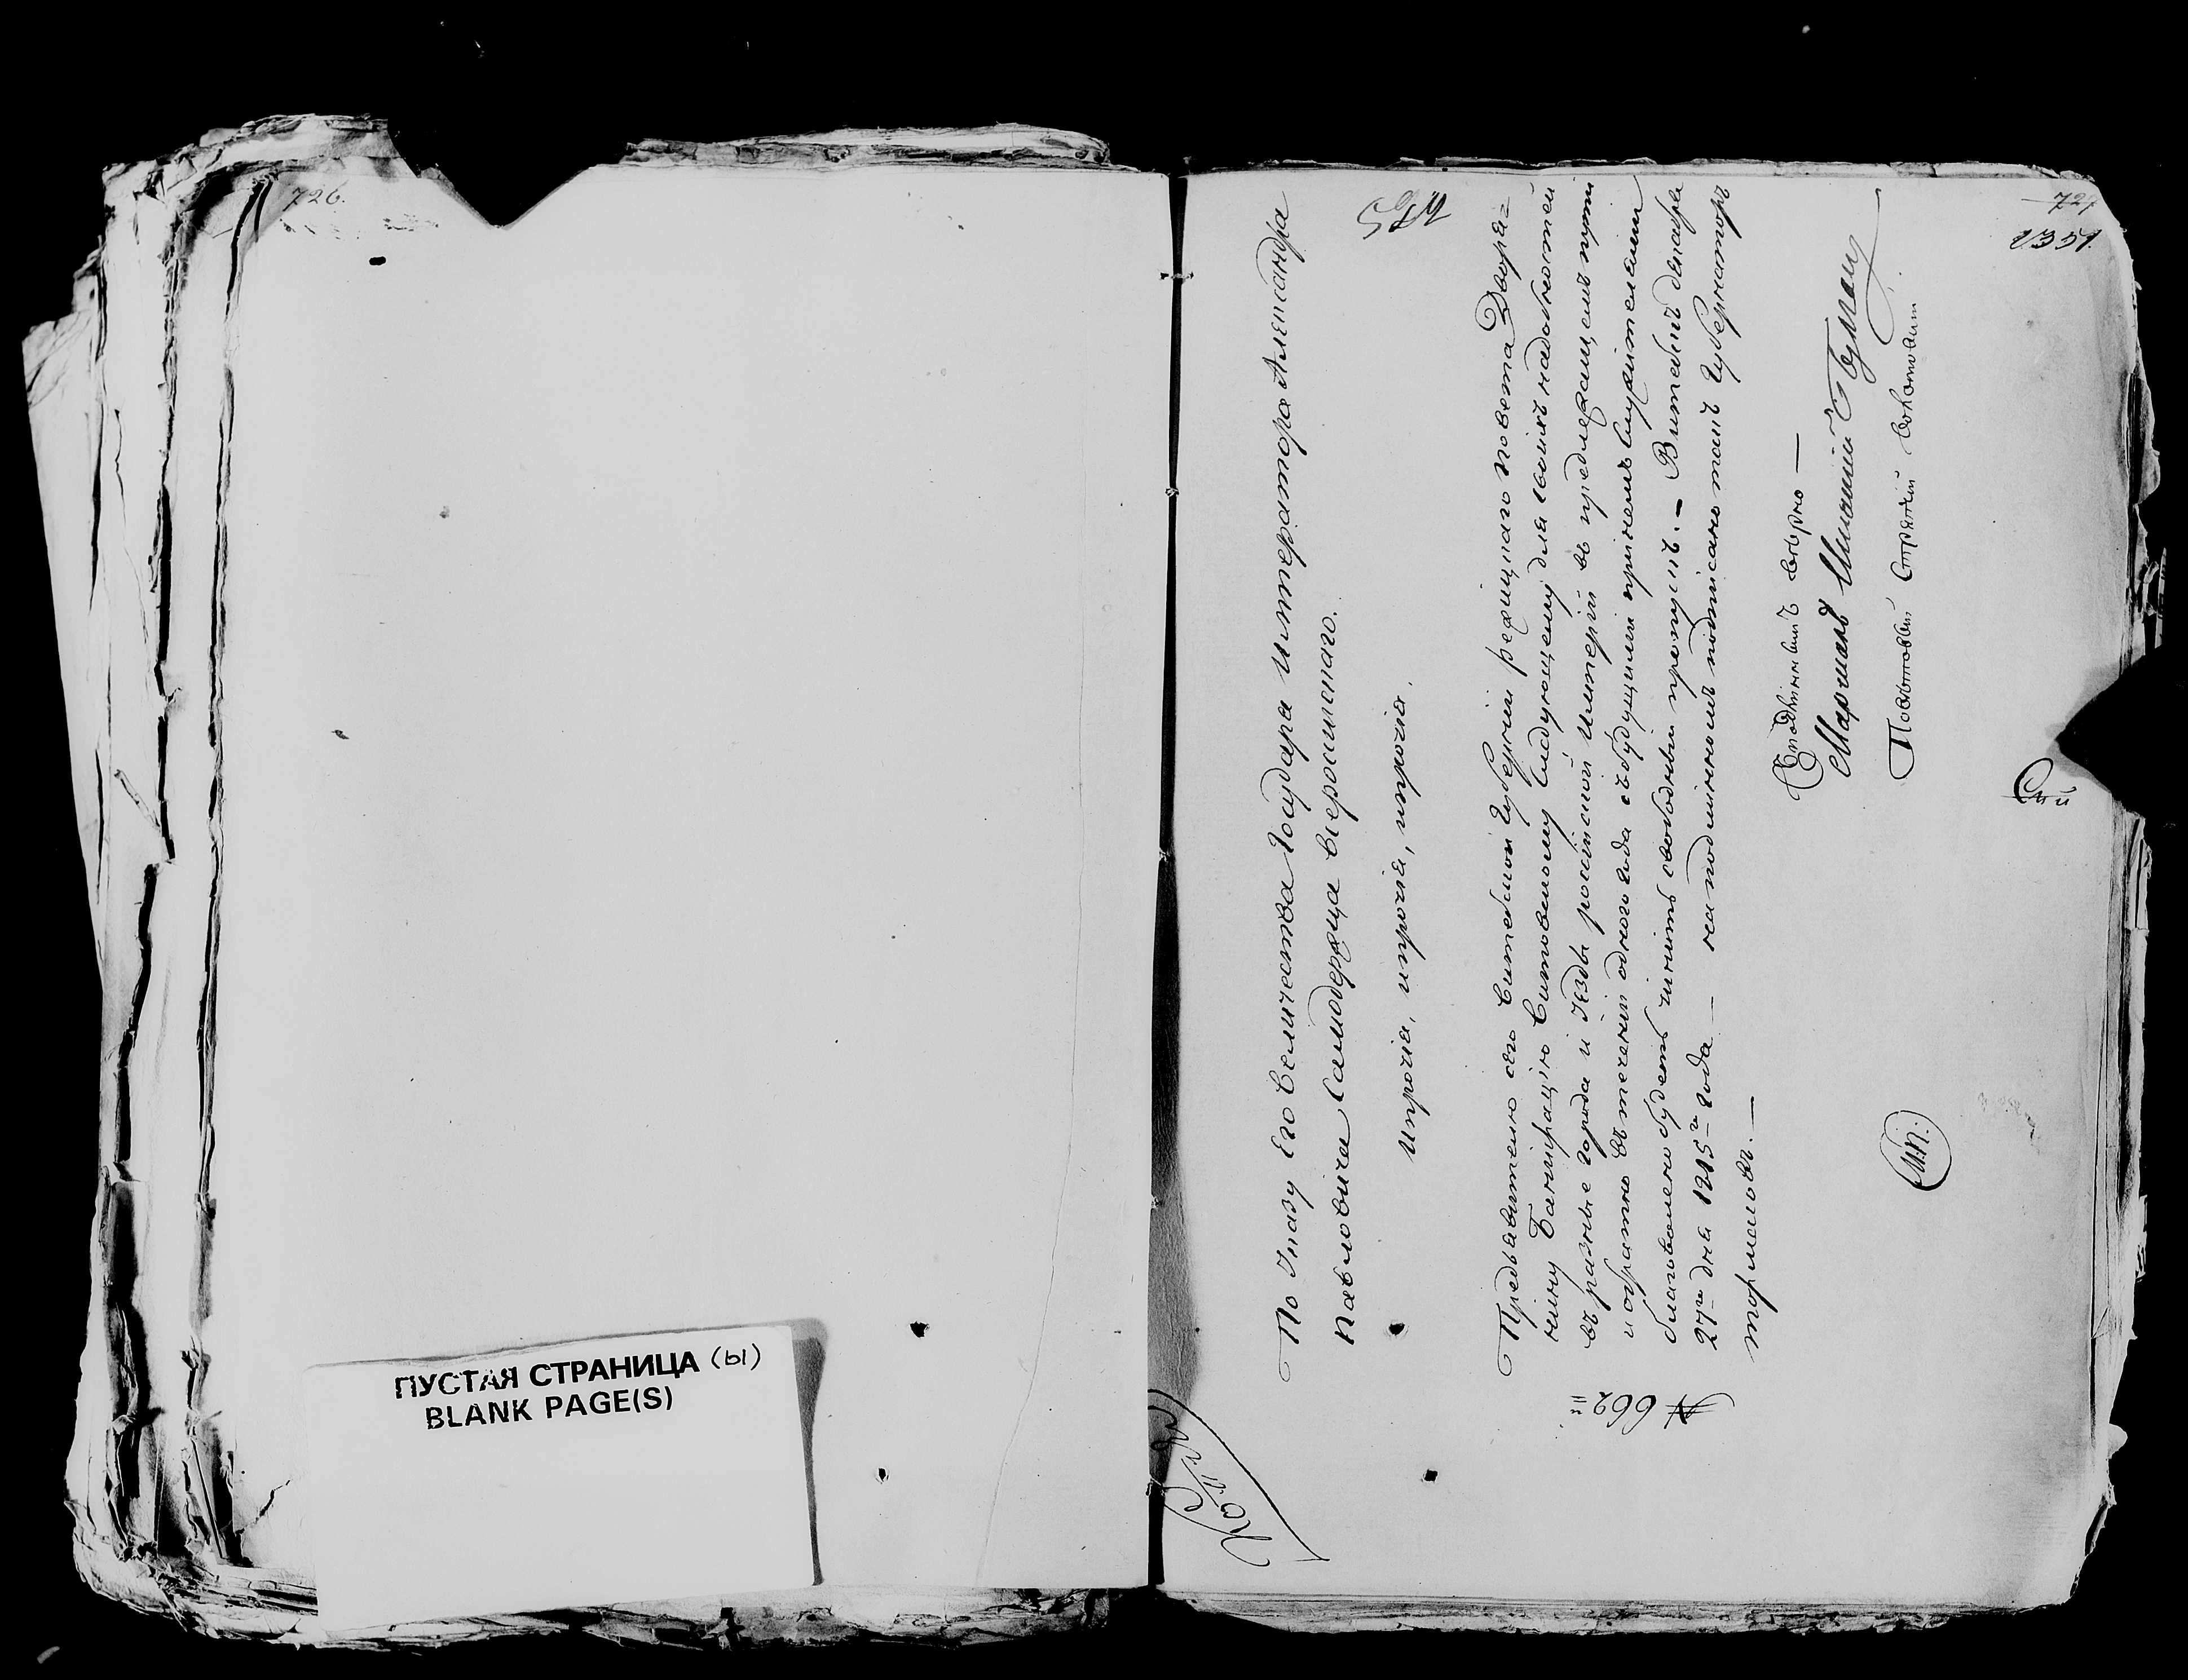 726.
ПУСТАЯ СТРАНИЦА (ы)
BLANK PAGE(S)
727
1351.
Копия
По Указу Его Величества Государя Императора Александра
Павловича Самодержца Всероссийскаго.
ипрочая, ипрочая, ипрочая.
Предъявителю сего Витебской Губернии режицкаго повета Дворя=
нину следующему для своихъ надобностей
въ разные города и уезды россійской Империи въ предлежащемъ пути
и обратно въ течении одного года съ будущими принемъ служителями
благоволено будетъ чинить свободный пропускъ. — Витебскъ декабря
27го дня 1815го года — на подлинномъ подписано тако: Губернаторъ
тормасовъ. —
№ 662й
Сподлиннымъ верно —
Поветовый Стряпчий
М.П.
Сей